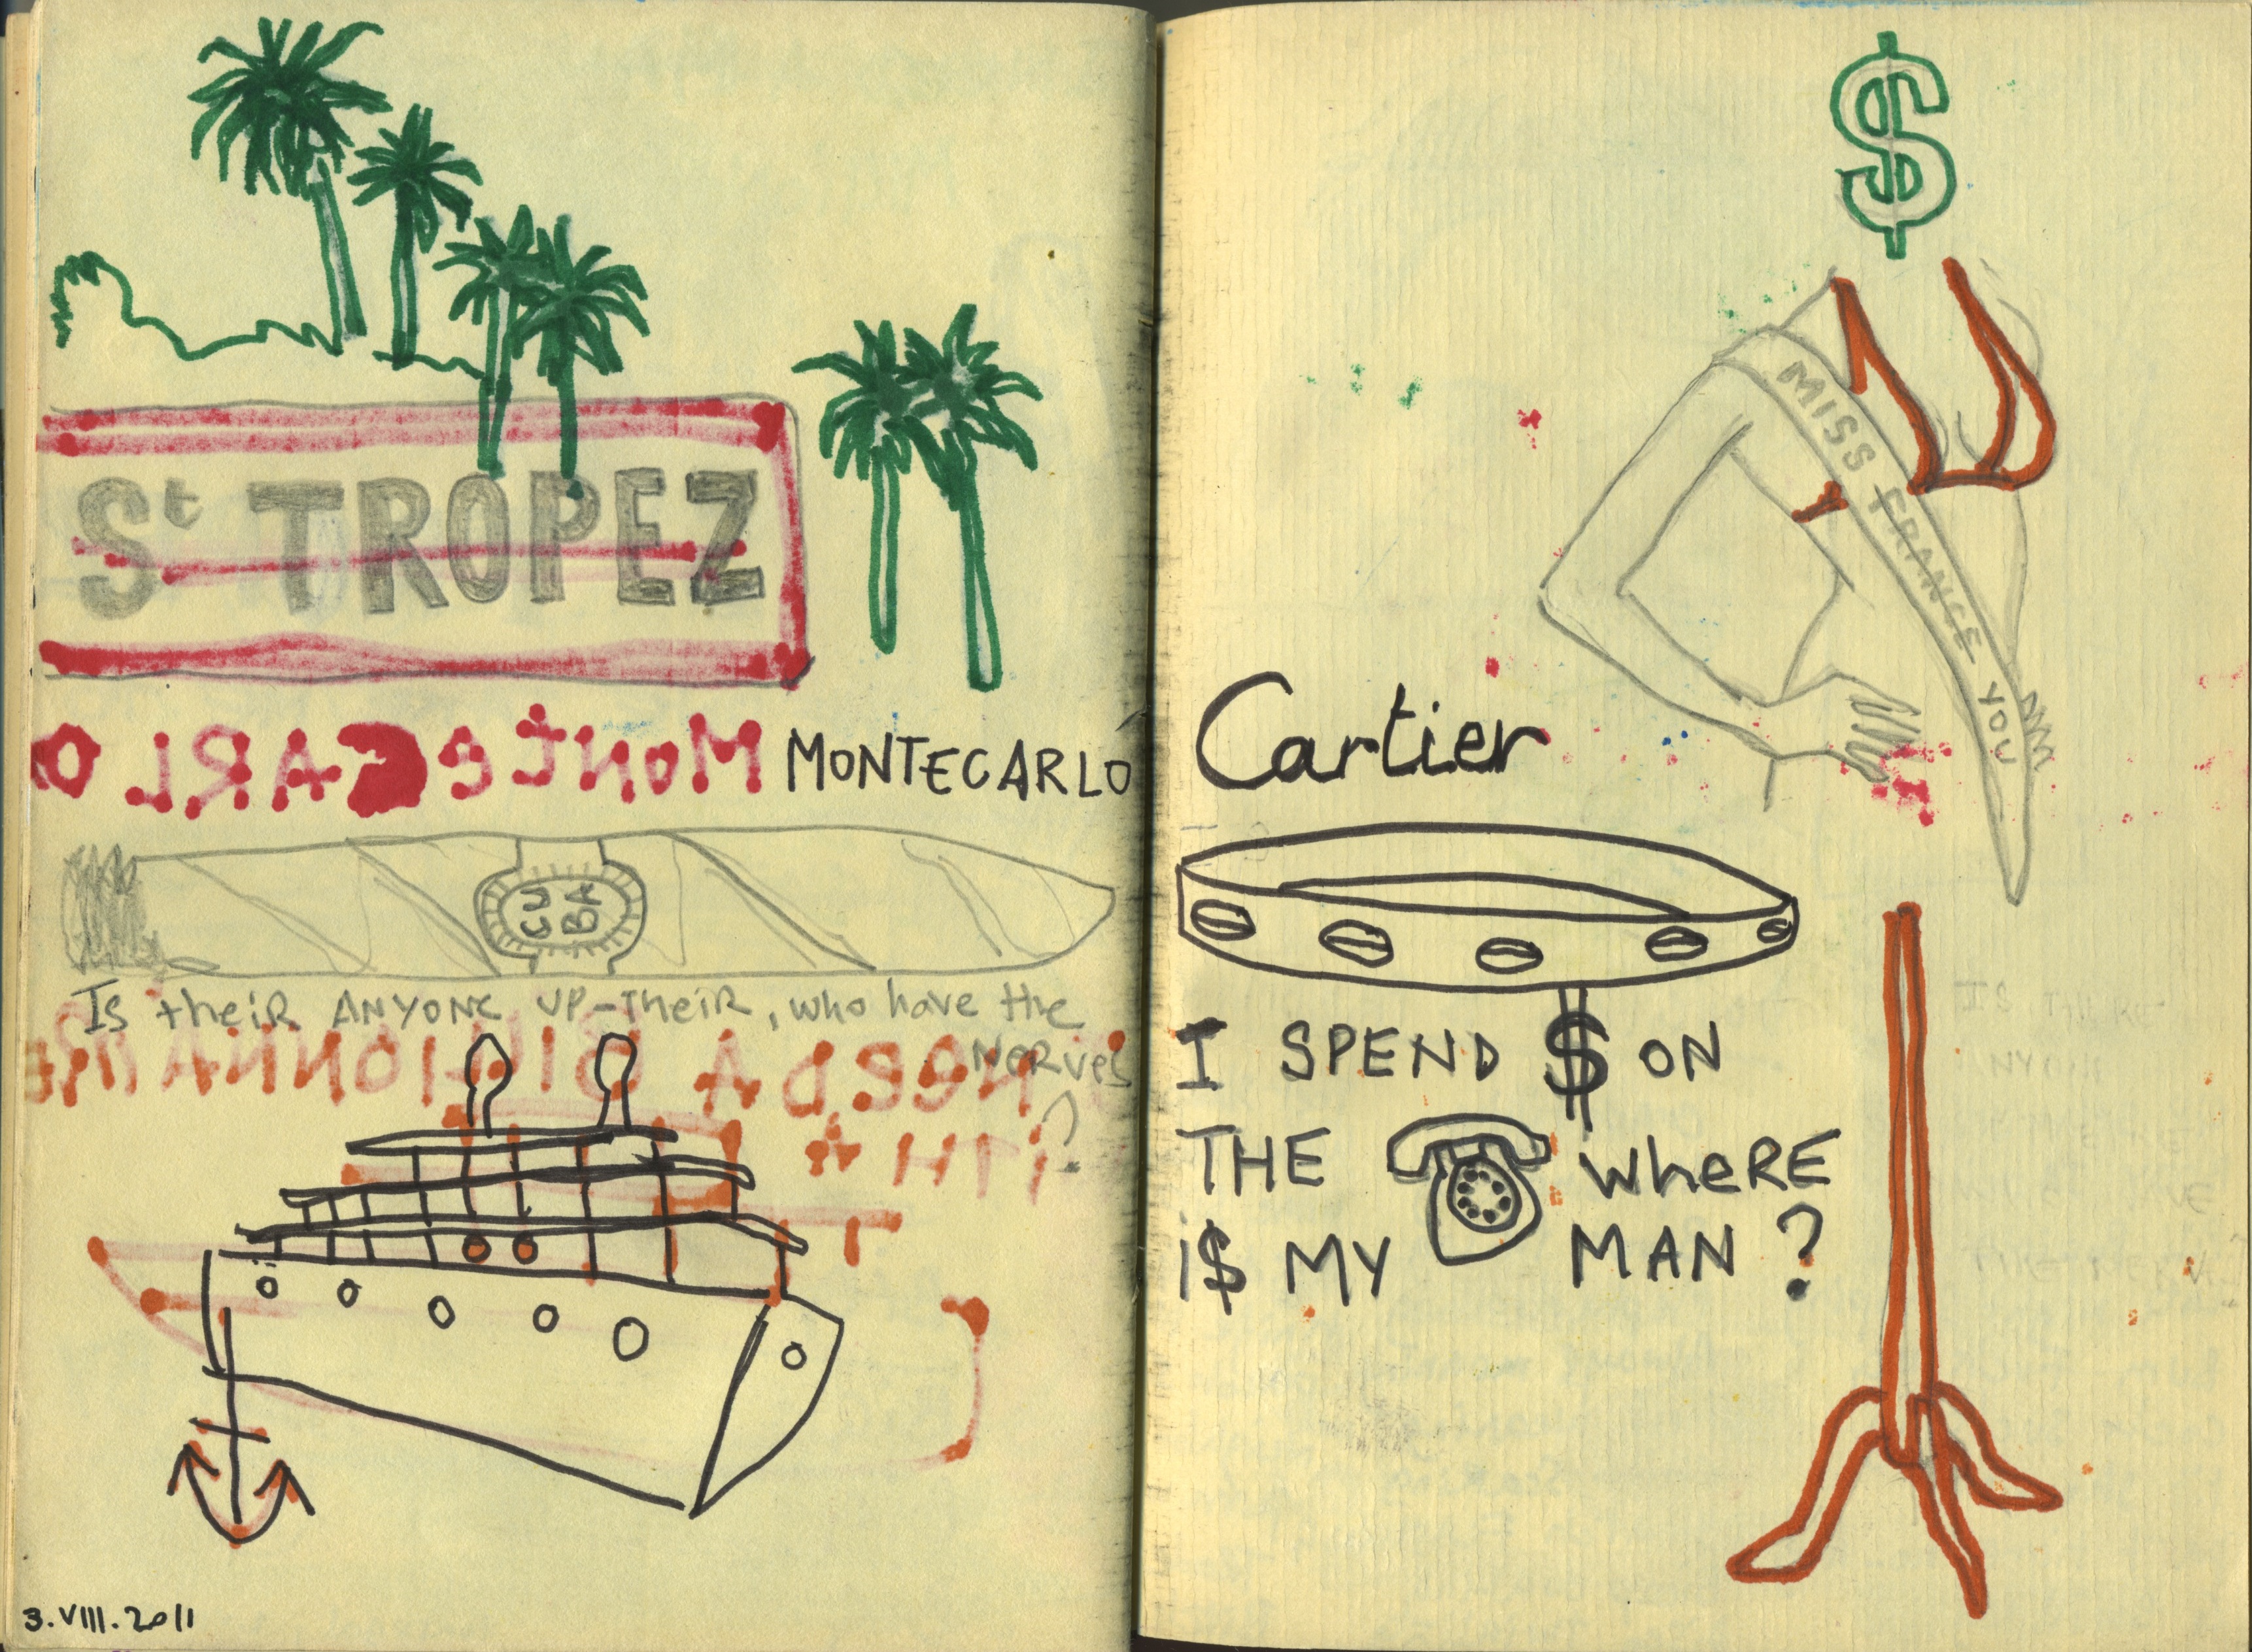 St TROPEZ
MonteCARLO
MONTECARLO
CU
BA
Is their ANYONE UP-Their, who have the
Nerves
?
NeeD A
3.VIII.2011
$
MISS FRANCE YOU
Cartier
I SPEND $ ON
THE WHeRE
i$ MY MAN ?